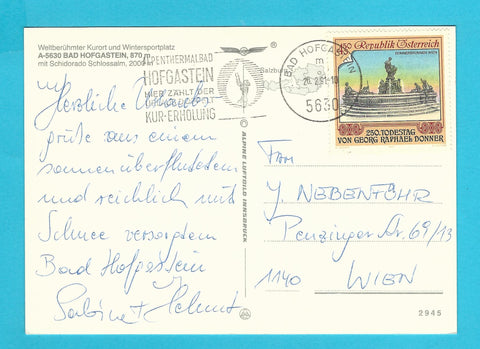 Weltberühmter Kurort und Wintersportplatz
A-5630 BAD HOFGASTEIN, 870 m
mit Schidorado Schlossalm,
ALPENTHERMALBAD
HOFGASTEIN
HIER ZÄHLT DER
KUR-ERHOLUNG
Salzburg
BAD HOFGASTEIN
5630
4.50
DONNERBRUNNEN WIEN
Republik Österreich
250. TODESTAG
VON GEORG RAPHAEL DONNER
Herzliche Urlaubs
grüße aus einem
sonnenüberfluteten
und reichlich mit
Schnee versorgtem
Bad Hofgastein
Sabine + Helmut
ALPINE LUFTBILD INNSBRUCK
J. NEBENFÜHR
Penzinger Str. 69/13
1140 WIEN
2945